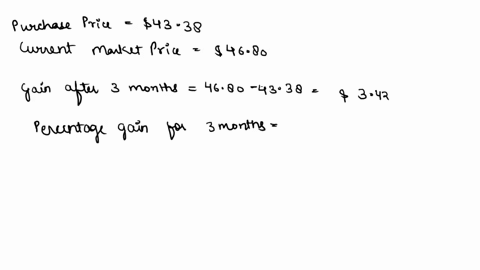 Purchase Price = $43.38
Current market Price = $46.80
Gain after 3 months = 46.80 - 43.38 = $ 3.42
Percentage gain for 3 months =